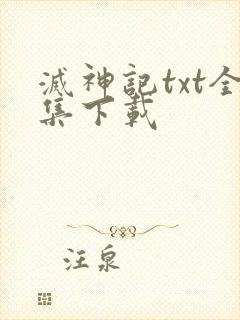 滅神記txt全
集下載
汪泉